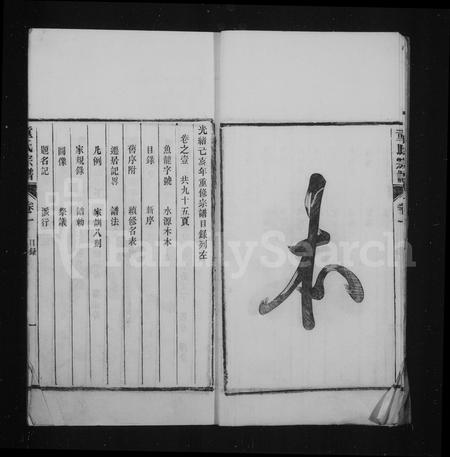 本
光緒己亥年重修宗譜目錄列左
卷之壹 共九十五頁
魚龍字號 水源木本
目錄 新序
舊序附 續修名表
遷居記畧 譜法
凡例 家訓八則
家規錄
圖像 祭議
題名記 派行
宗譜 卷一 目錄 一
FamilySearch